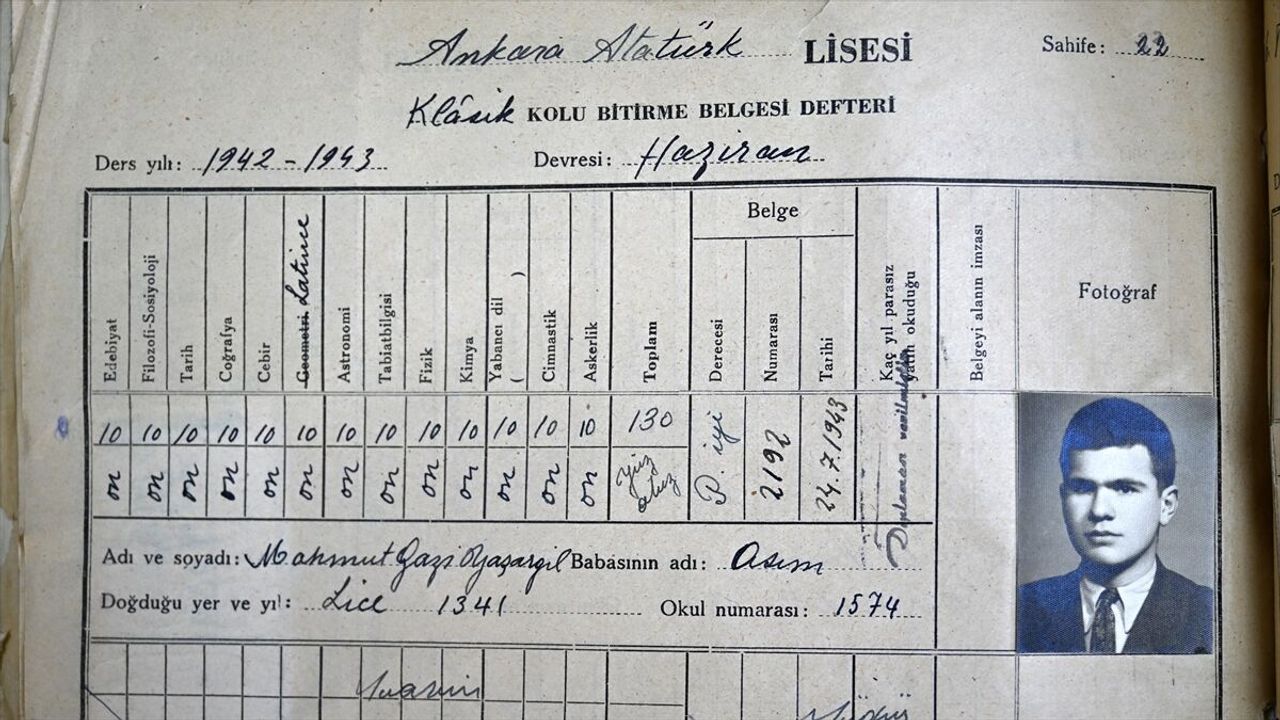 Ankara Atatürk LİSESİ
Sahife: 22
Klâsik KOLU BİTİRME BELGESİ DEFTERİ
Ders yılı: 1942-1943 Devresi: Haziran
Edebiyat
Filozofi-Sosiyoloji
Tarih
Coğrafya
Cebir
Geometri Latince
Astronomi
Tabiatbilgisi
Fizik
Kimya
Yabancı dil ( )
Cimnastik
Askerlik
Toplam
Belge
Derecesi
Numarası
Tarihi
Kaç yıl parasız
yatılı okuduğu
Belgeyi alanın imzası
Fotoğraf
10 10 10 10 10 10 10 10 10 10 10 10 10 130
on on on on on on on on on on on on on yüz otuz
P. iyi
2192
24.7.1943
Diploması verilmiştir
Adı ve soyadı: Mahmut Gazi Yaşargil Babasının adı: Asım
Doğduğu yer ve yıl: Lice 1341 Okul numarası: 1574